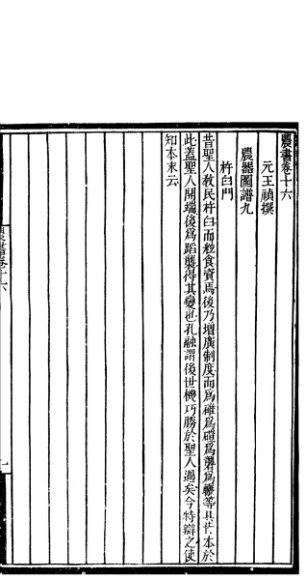 農書卷十六
元王禎撰
農器圖譜九
杵臼門
昔聖人教民杵臼而粒食資焉後乃增廣制度而為碓為磑為礱為輾等具皆本於
此蓋聖人開端後為蹈襲得其變也孔融謂後世機巧勝於聖人過矣今特辯之使
知本末云